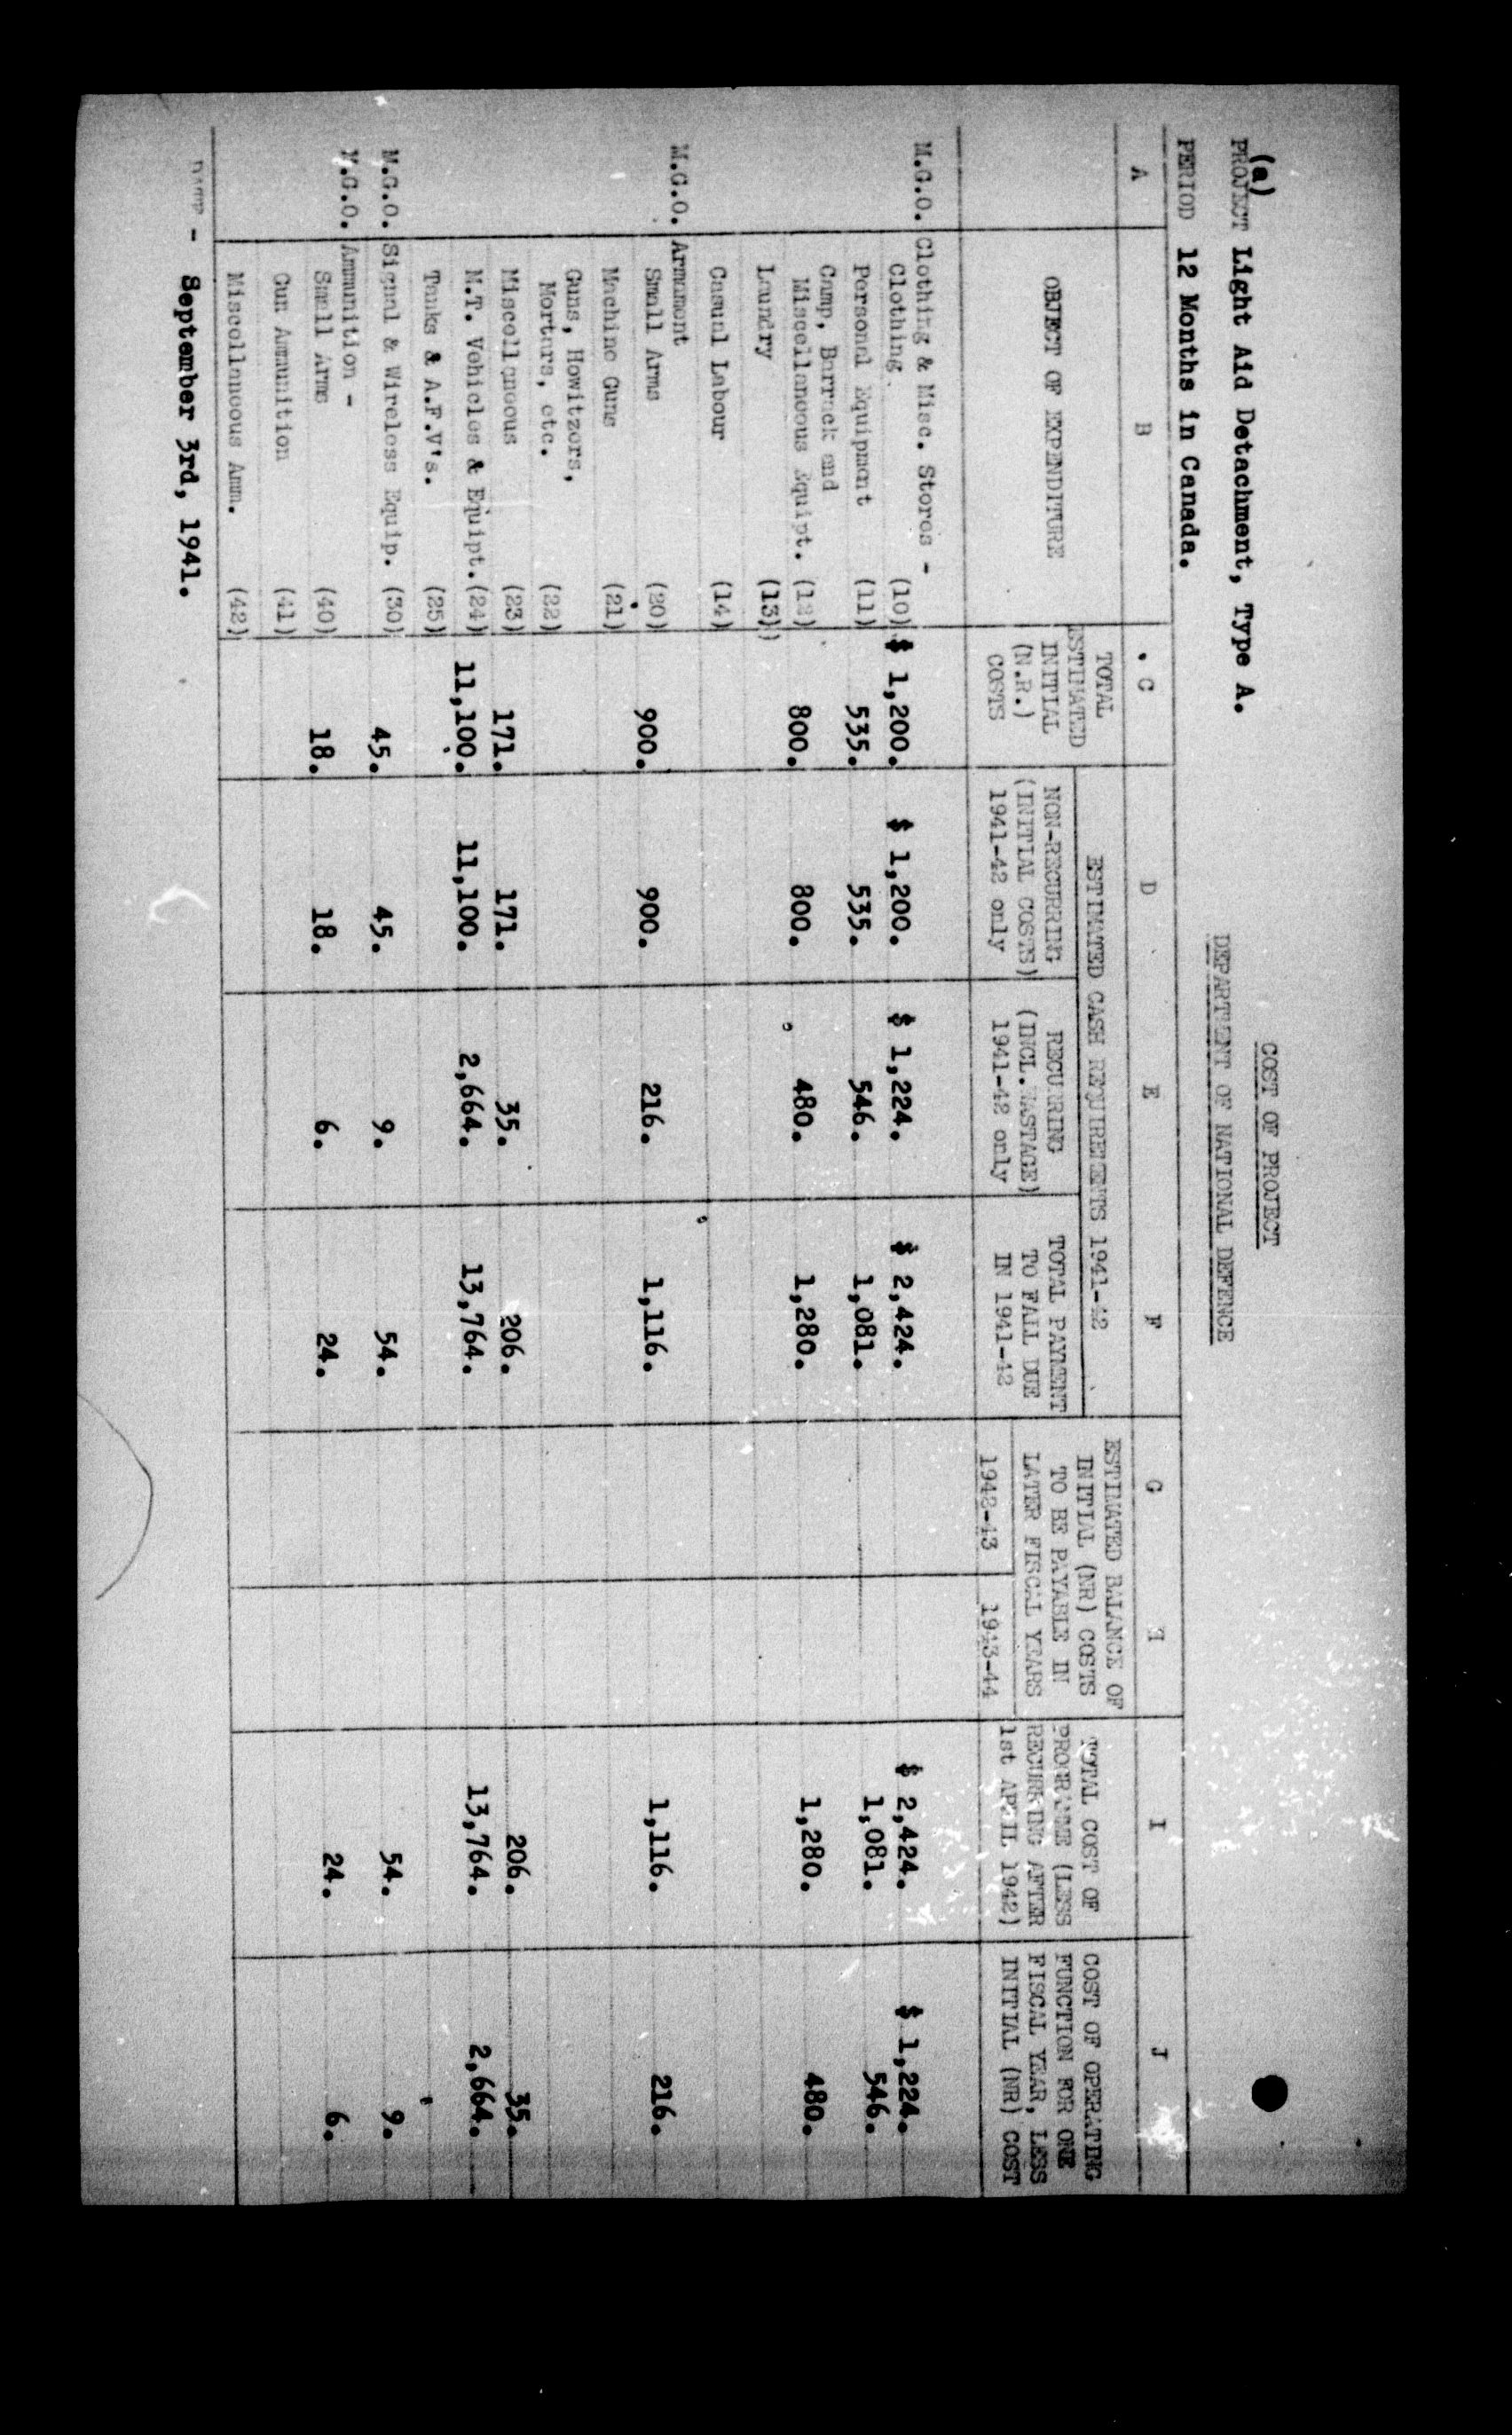 COST OF PROJECT
(a)
PROJECT Light Aid Detachment, Type A.
DEPARTMENT OF NATIONAL DEFENCE
PERIOD 12 Months in Canada.
A B C D E F G H I J
OBJECT OF EXPENDITURE
TOTAL
ESTIMATED
INITIAL
(N.R.)
COSTS
ESTIMATED CASH REQUIREMENTS 1941-42
NON-RECURRING
(INITIAL COSTS)
1941-42 only
RECURRING
(INCL. WASTAGE)
1941-42 only
TOTAL PAYMENT
TO FALL DUE
IN 1941-42
ESTIMATED BALANCE OF
INITIAL (NR) COSTS
TO BE PAYABLE IN
LATER FISCAL YEARS
1942-43 1943-44
TOTAL COST OF
PROGRAMME (LESS
RECURRING AFTER
1st APRIL 1942)
COST OF OPERATING
FUNCTION FOR ONE
FISCAL YEAR, LESS
INITIAL (NR) COST
M.G.O. Clothing & Misc. Stores -
Clothing (10) $ 1,200. $ 1,200. $ 1,224. $ 2,424. $ 2,424. $ 1,224.
Personal Equipment (11) 535. 535. 546. 1,081. 1,081. 546.
Camp, Barrack and
Miscellaneous Equipt. (12) 800. 800. 480. 1,280. 1,280. 480.
Laundry (13)
Casual Labour (14)
M.G.O. Armament
Small Arms (20) 900. 900. 216. 1,116. 1,116. 216.
Machine Guns (21)
Guns, Howitzers,
Mortars, etc. (22)
Miscellaneous (23) 171. 171. 35. 206. 206. 35.
M.T. Vehicles & Equipt. (24) 11,100. 11,100. 2,664. 13,764. 13,764. 2,664.
Tanks & A.F.V's. (25)
M.G.O. Signal & Wireless Equip. (30) 45. 45. 9. 54. 54. 9.
M.G.O. Ammunition -
Small Arms (40) 18. 18. 6. 24. 24. 6.
Gun Ammunition (41)
Miscellaneous Amm. (42)
DATE - September 3rd, 1941.